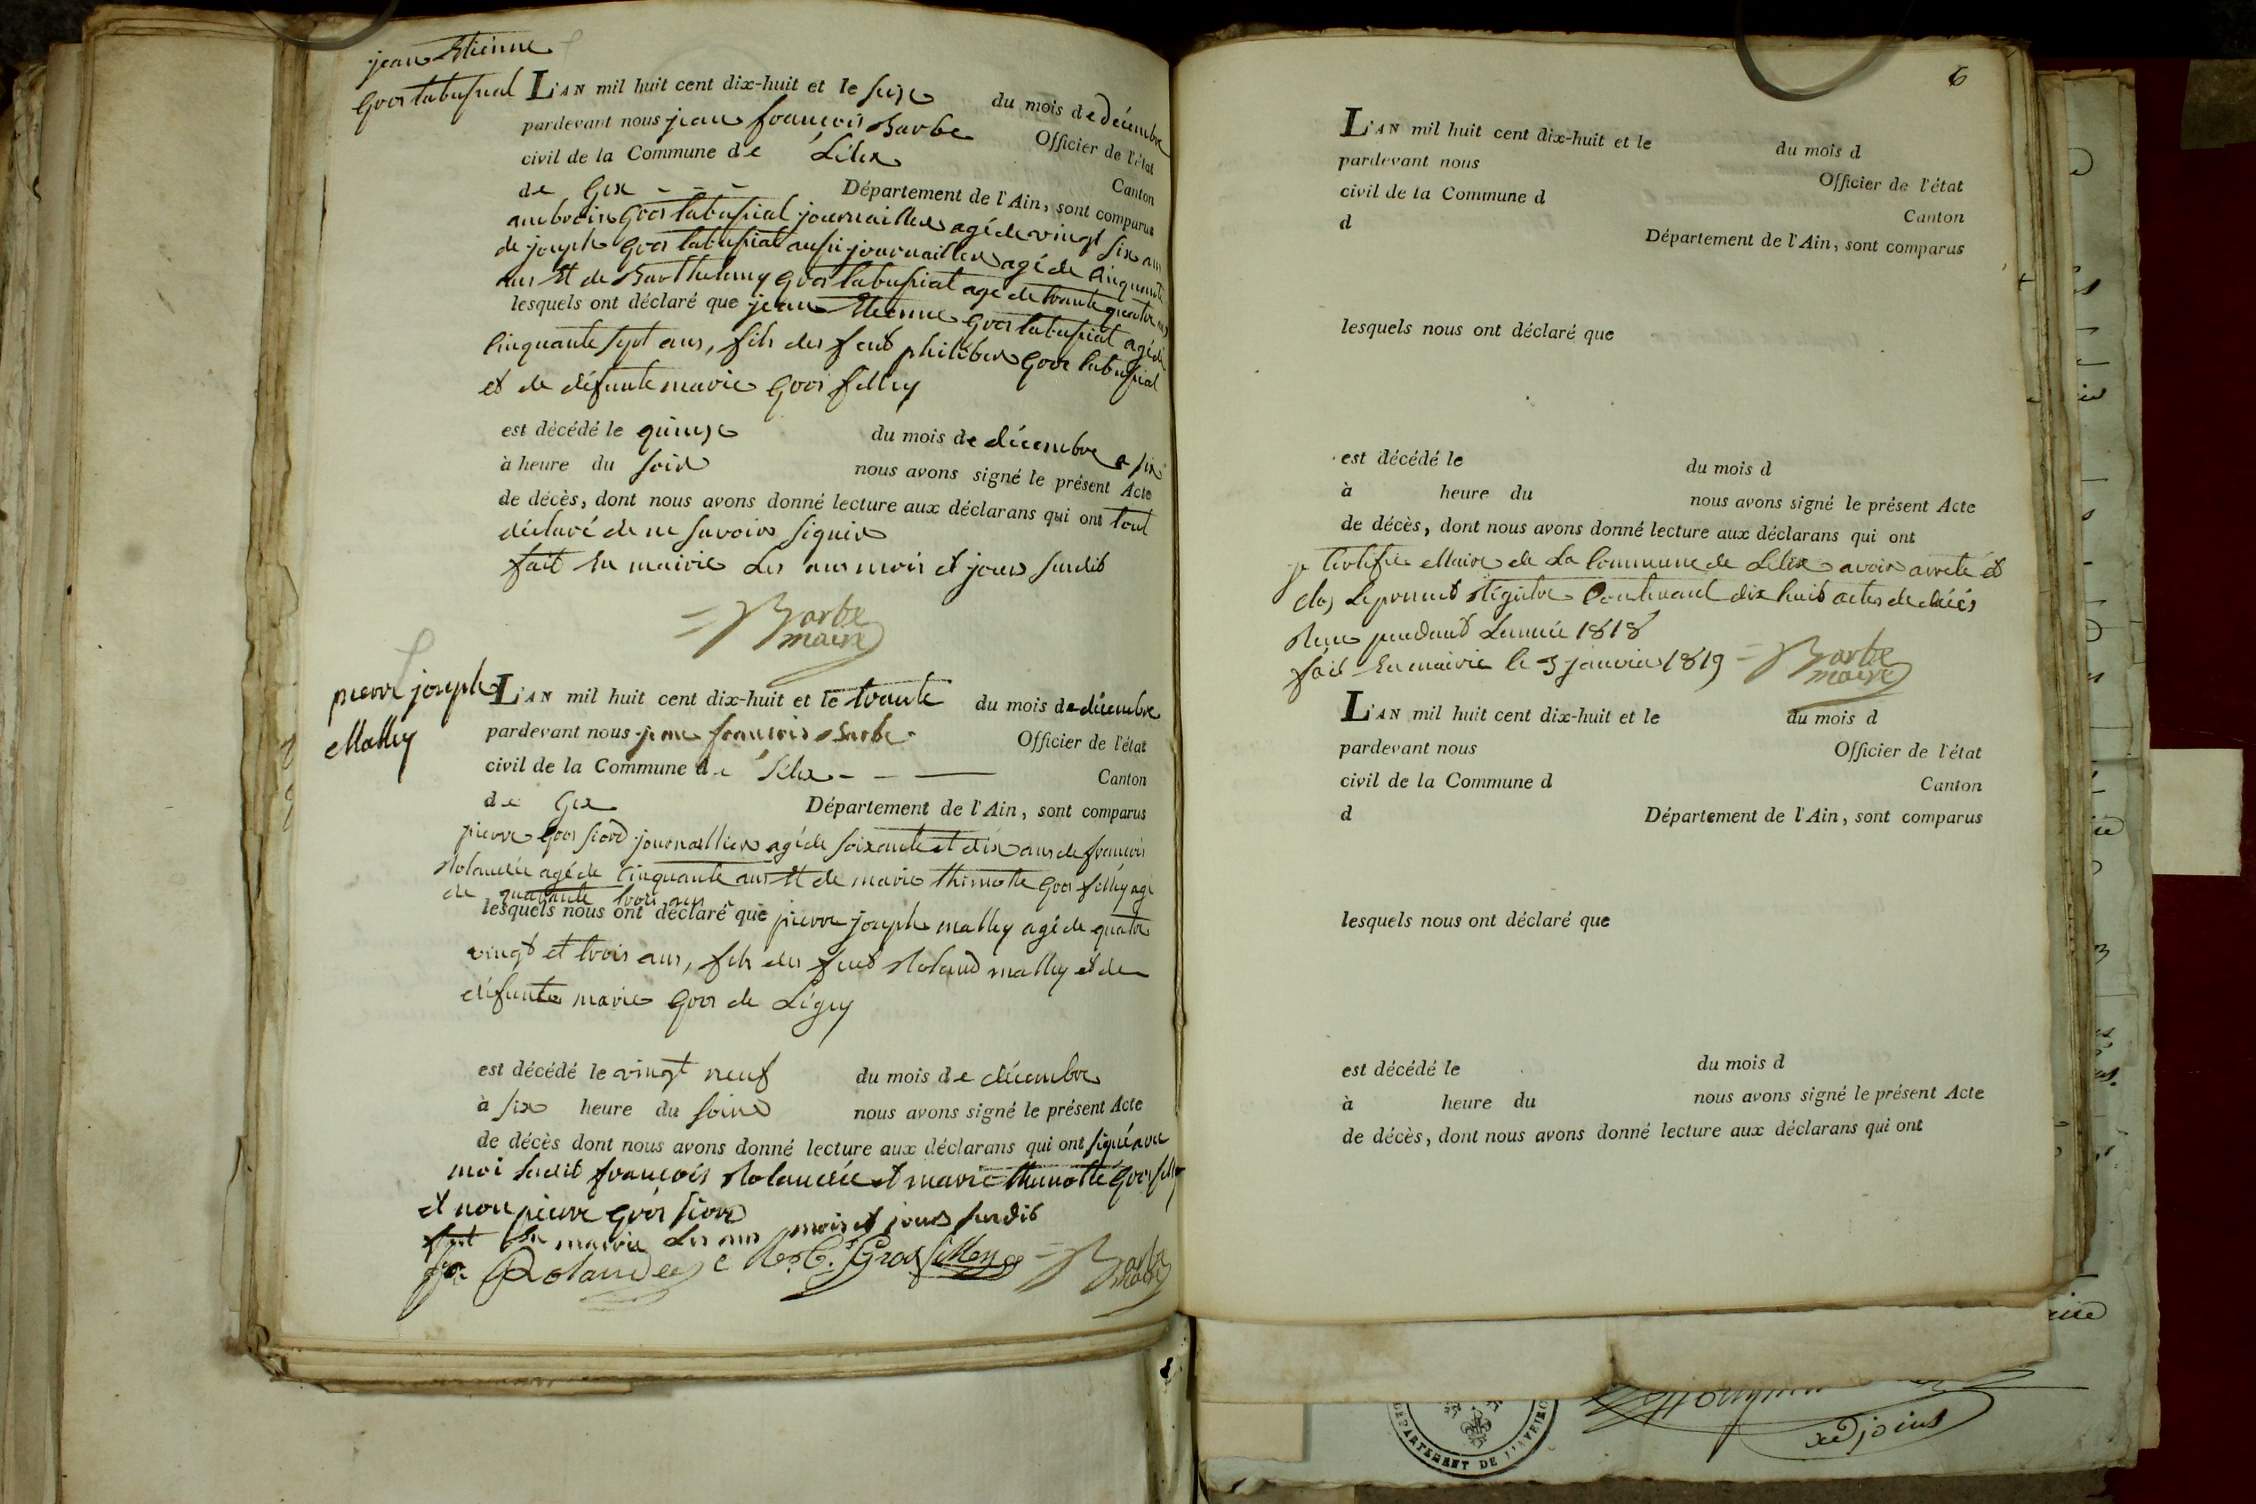 jean Etienne
Gros labussiat
L'AN mil huit cent dix-huit et le seize du mois de décembre
pardevant nous jean françois Barbe Officier de l'état
civil de la Commune de Lélex Canton
de Gex - - - Département de l'Ain, sont comparus
ambroise Gros labussiat journaillier agé de vingt six ans
de joseph Gros labussiat aussi journaillier agé de cinquante
ans Et de Barthelemy Gros labussiat agé de trante quatre ans
lesquels ont déclaré que jean Etienne Gros labussiat agé de
cinquante sept ans, fils des feut philiber Gros labussiat
et de défunte marie Gros filley
est décédé le quinze du mois de décembre a six
à heure du soir nous avons signé le présent Acte
de décès, dont nous avons donné lecture aux déclarans qui ont tout
déclaré de ne savoir signier
fait En mairie Les ans mois et jour susdit
Barbe
maire
pierre joseph
Malley
L'AN mil huit cent dix-huit et le trante du mois de décembre
pardevant nous jean françois Barbe Officier de l'état
civil de la Commune de Lélex - - — Canton
de Gex Département de l'Ain, sont comparus
pierre Gros siord journaillier agé de soixante et dix ans de françois
Rolandée agé de cinquante ans Et de marie thimotte Gros filley agé
de quarante trois ans
lesquels nous ont déclaré que pierre joseph malley agé de quatre
vingt et trois ans, fils des feut Roland malley et de
défunte marie Gros de Légey
est décédé le vingt neuf du mois de décembre
à six heure du soire nous avons signé le présent Acte
de décès dont nous avons donné lecture aux déclarans qui ont signé avec
moi susdit françois Rolandée et marie thimotté Gros filley
et non pierre Gros siord
fait En mairie Les ans mois et jour susdit
Rolandee Gros fillley Barbe
maire
6
L'AN mil huit cent dix-huit et le du mois d
pardevant nous Officier de l'état
civil de la Commune d Canton
d Département de l'Ain, sont comparus
lesquels nous ont déclaré que
est décédé le du mois d
à heure du nous avons signé le présent Acte
de décès, dont nous avons donné lecture aux déclarans qui ont
je Certifie Maire de La Commune de Lélex avoir arreté et
clos Le present Régitre Contenant dix huit actes de décés
Reçus pendant L'année 1818
fait En mairie le 3 janvier 1819 Barbe
maire
L'AN mil huit cent dix-huit et le du mois d
pardevant nous Officier de l'état
civil de la Commune d Canton
d Département de l'Ain, sont comparus
lesquels nous ont déclaré que
est décédé le du mois d
à heure du nous avons signé le présent Acte
de décès, dont nous avons donné lecture aux déclarans qui ont
adjoint
DEPARTEMENT DE L'AVEIRO